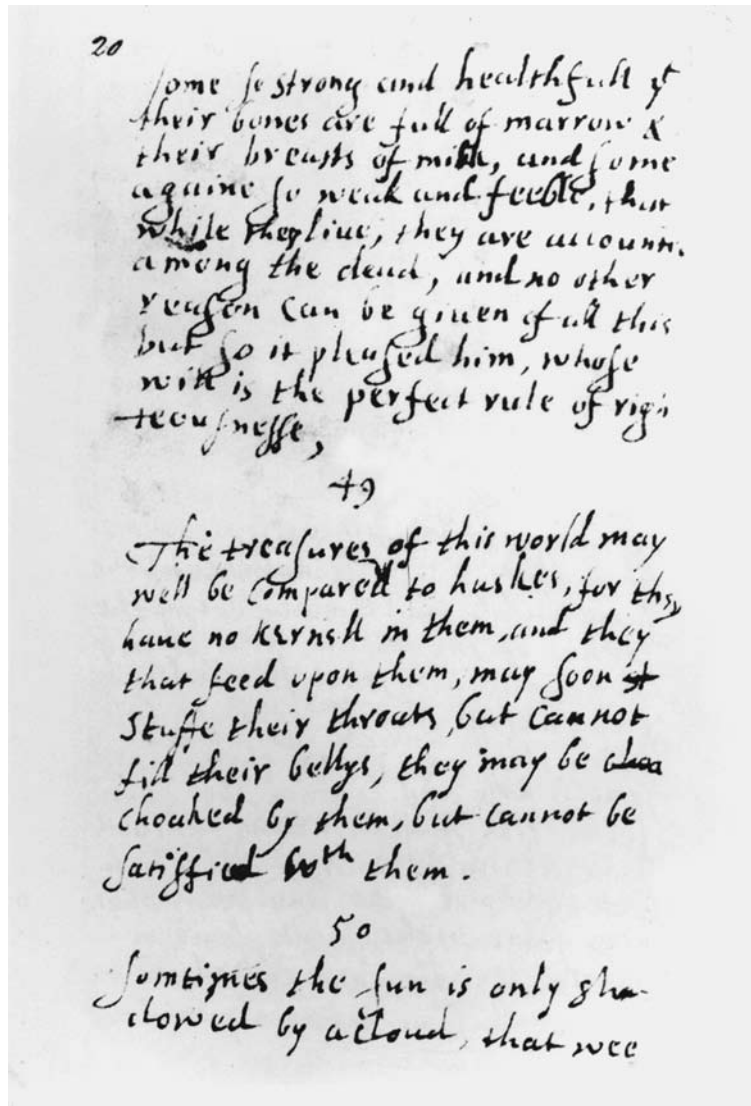 20
some so strong and healthfull yt
their bones are full of marrow &
their breasts of milk, and some
againe so weak and feeble, that
while they liue, they are accounted
among the dead, and no other
reason can be giuen of all this
but so it pleased him, whose
will is the perfect rule of righ
teousnesse,
49
The treasures of this world may
well be compared to huskes, for they
haue no kernell in them, and they
that feed upon them, may soon st
stuffe their throats, but cannot
fill their bellys, they may be choa
choaked by them, but cannot be
satisfied wth them.
50
Somtimes the sun is only sha-
dowed by a cloud, that wee